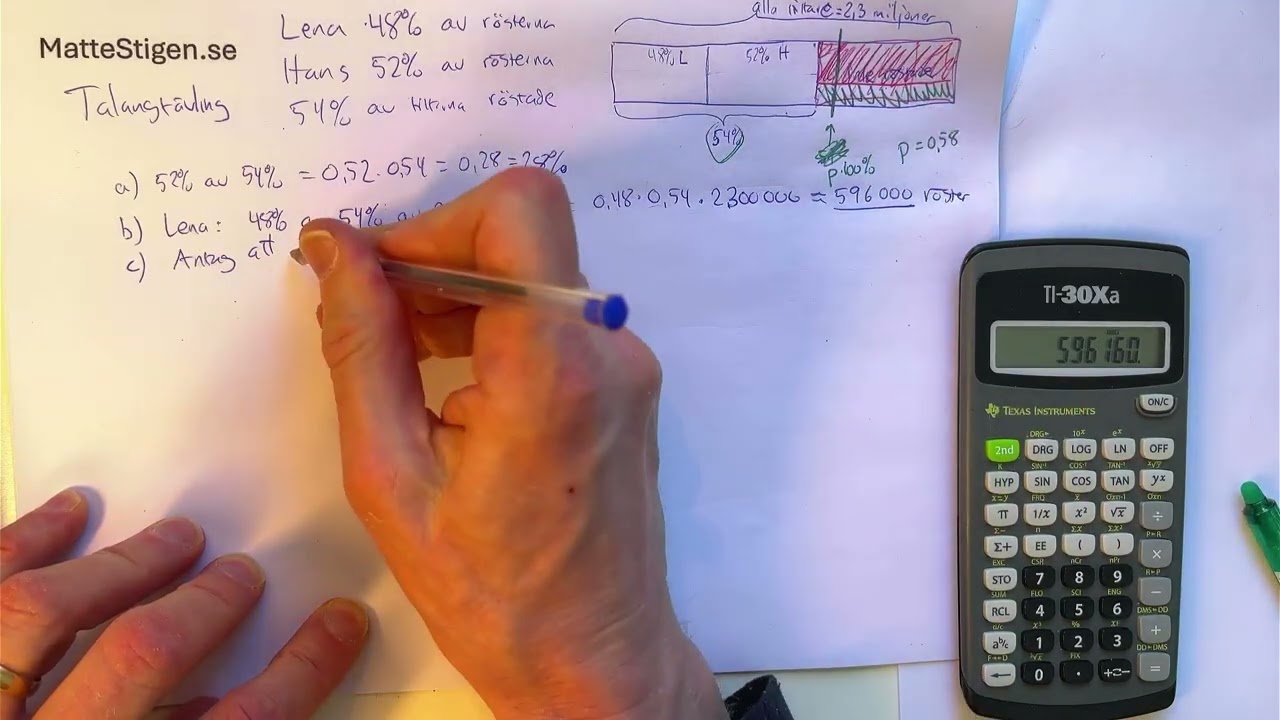 MatteStigen.se
Talangtävling
Lena 48% av rösterna
Hans 52% av rösterna
54% av tittarna röstade
alla tittare = 2,3 miljoner
48% L
52% H
54%
p·100%
p = 0,58
a) 52% av 54% = 0,52 · 0,54 = 0,28 = 28%
b) Lena: 48% 54% av
0,48 · 0,54 · 2300000 ≈ 596000 röster
c) Antag att
TI-30Xa
596160.
TEXAS INSTRUMENTS
ON/C
DRG► 10ˣ eˣ
2nd DRG LOG LN OFF
K SIN⁻¹ COS⁻¹ TAN⁻¹
HYP SIN COS TAN yˣ
π 1/x x² √x ÷
Σ+ EE ( ) ×
STO 7 8 9 −
RCL 4 5 6 +
aᵇ/c 1 2 3 =
← 0 .